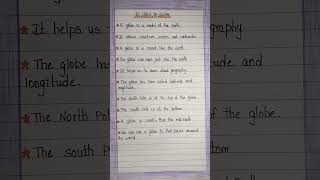 10 lines on Globe
A globe is a model of the Earth.
It shows countries, oceans and continents.
A globe is a round like the earth.
The globe can spin just like the earth.
It helps us to learn about geography.
The globe has lines called latitude and
longitude.
The North Pole is at the top of the globe.
The south Pole is at the bottom
A globe is smaller than the real earth.
We can use a globe to find places around
the world.
It helps us
The globe ha
longitude.
The North Pol
The south p
geography.
latitude and
of the globe.
tom